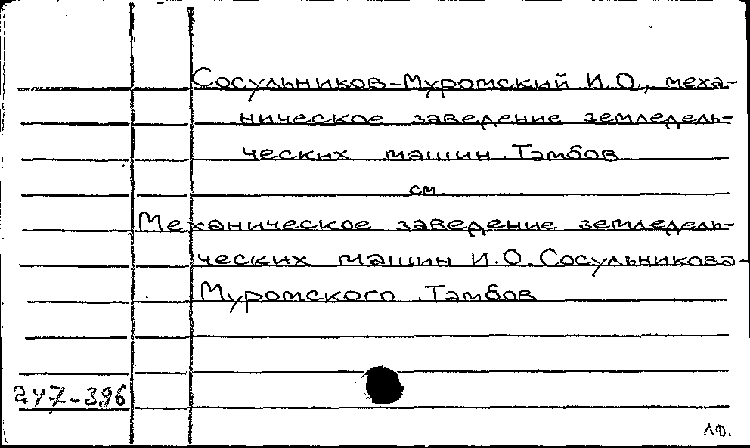 Сосульников-Муромский И.О., меха-
ническое заведение земледель-
ческих машин. Тамбов
см.
Механическое заведение земледель-
ческих машин И.О. Сосульникова-
Муромского. Тамбов
247-396
ЛФ.